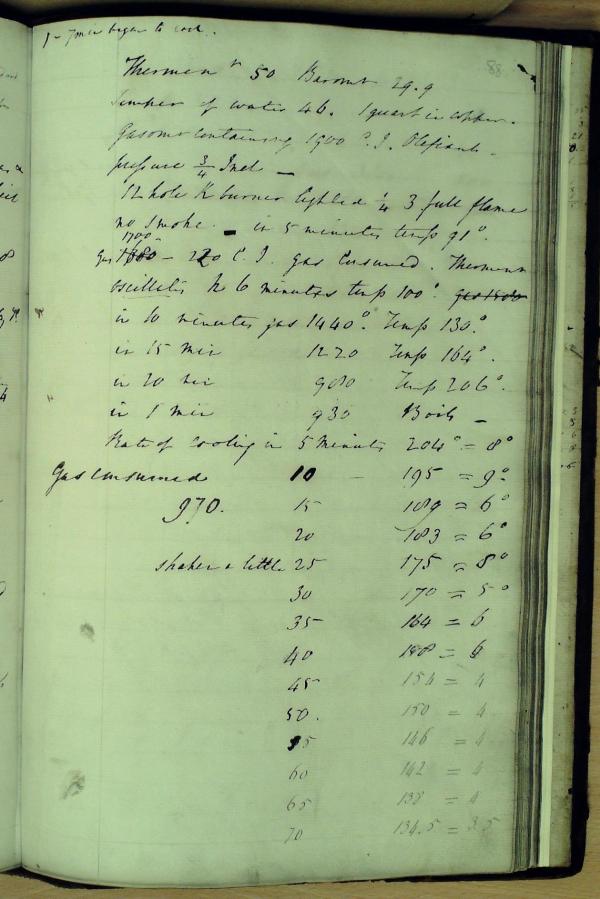 1 - 7 min began to cool.
88
Thermom r 50 Baromt 29.9
Temper of water 46. 1 quart in copper.
Gasomr containing 1900 C. I. Olefiant.
pressure 3/4 Inch —
12 hole K burner lighted 1/4 3 full flame
no smoke. — in 5 minutes temp 91°.
1700
gas 1680 - 220 C. I. gas Consumed. Thermom
oscillates 6 minutes temp 100°.
in 10 minutes gas 1440. Temp 130.°
in 15 Min 1220 Temp 164°.
in 20 Min Temp 206°.
in 1 min 930 Boils —
Rate of Cooling in 5 Minutes 204° = 8°
Gas consumed 10 — 195 = 9°
970. 15 189 = 6°
20 183 = 6°
shaken a little 25 175 = 8°
30 170 = 5°
35 164 = 6
40 158 = 6
45 154 = 4
50. 150 = 4
55 146 = 4
60 142 = 4
65 138 = 4
70 134.5 = 3.5